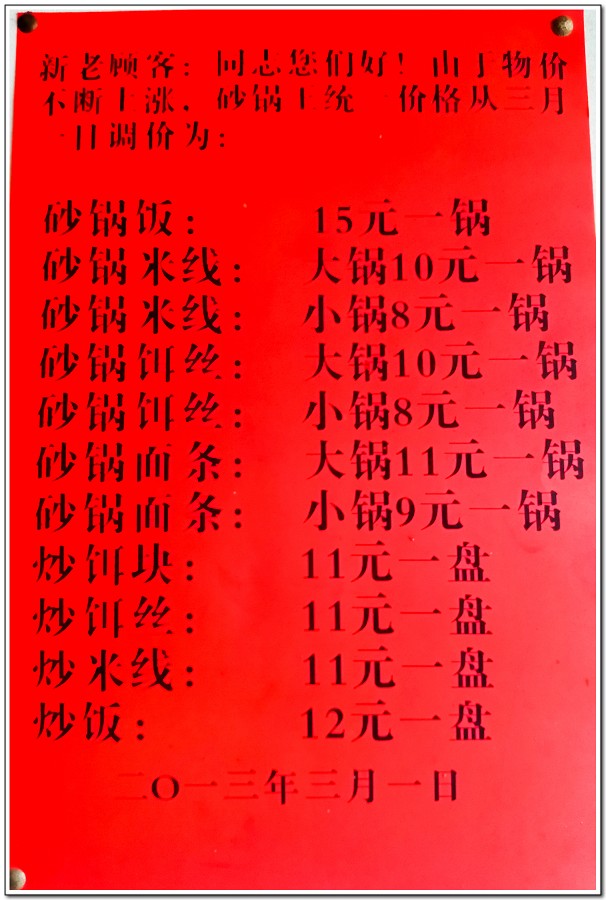 新老顾客：同志您们好！由于物价
不断上涨，砂锅王统一价格从三月
一日调价为：
砂锅饭： 15元一锅
砂锅米线： 大锅10元一锅
砂锅米线： 小锅8元一锅
砂锅饵丝： 大锅10元一锅
砂锅饵丝： 小锅8元一锅
砂锅面条： 大锅11元一锅
砂锅面条： 小锅9元一锅
炒饵块： 11元一盘
炒饵丝： 11元一盘
炒米线： 11元一盘
炒饭： 12元一盘
二〇一三年三月一日